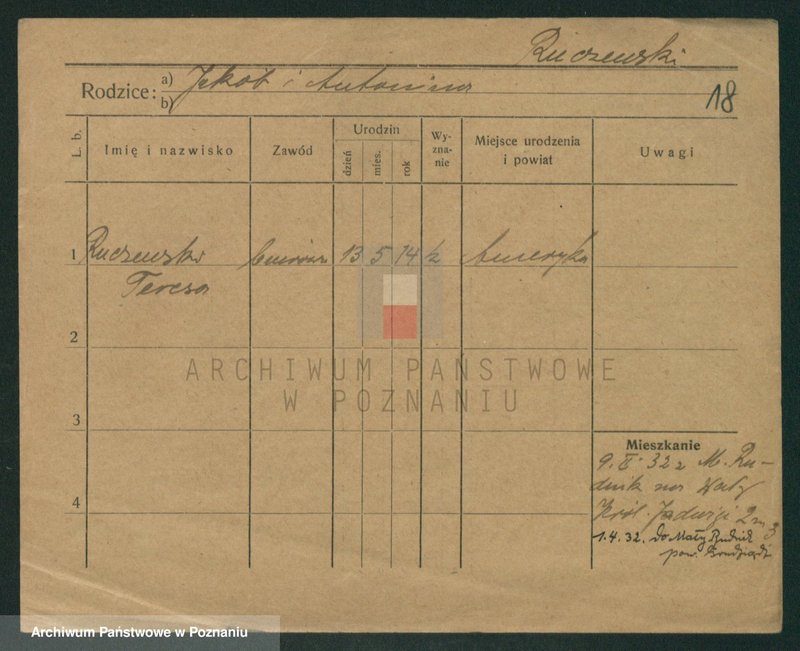 Ruczewski
Rodzice: a) Jakób i Antonina
b)
18
L. b.
Imię i nazwisko
Zawód
Urodzin
dzień
mies.
rok
Wy-
zna-
nie
Miejsce urodzenia
i powiat
Uwagi
1 Ruczewska 13 5 14 Ameryka
Teresa
2
ARCHIWUM PAŃSTWOWE
W POZNANIU
3
Mieszkanie
9. II. 32 z M. Ru-
dnik na Wały
4
Król. Jadwigi 2 m 3
1.4.32. do Mały Rudnik
pow. Grudziądz
Archiwum Państwowe w Poznaniu